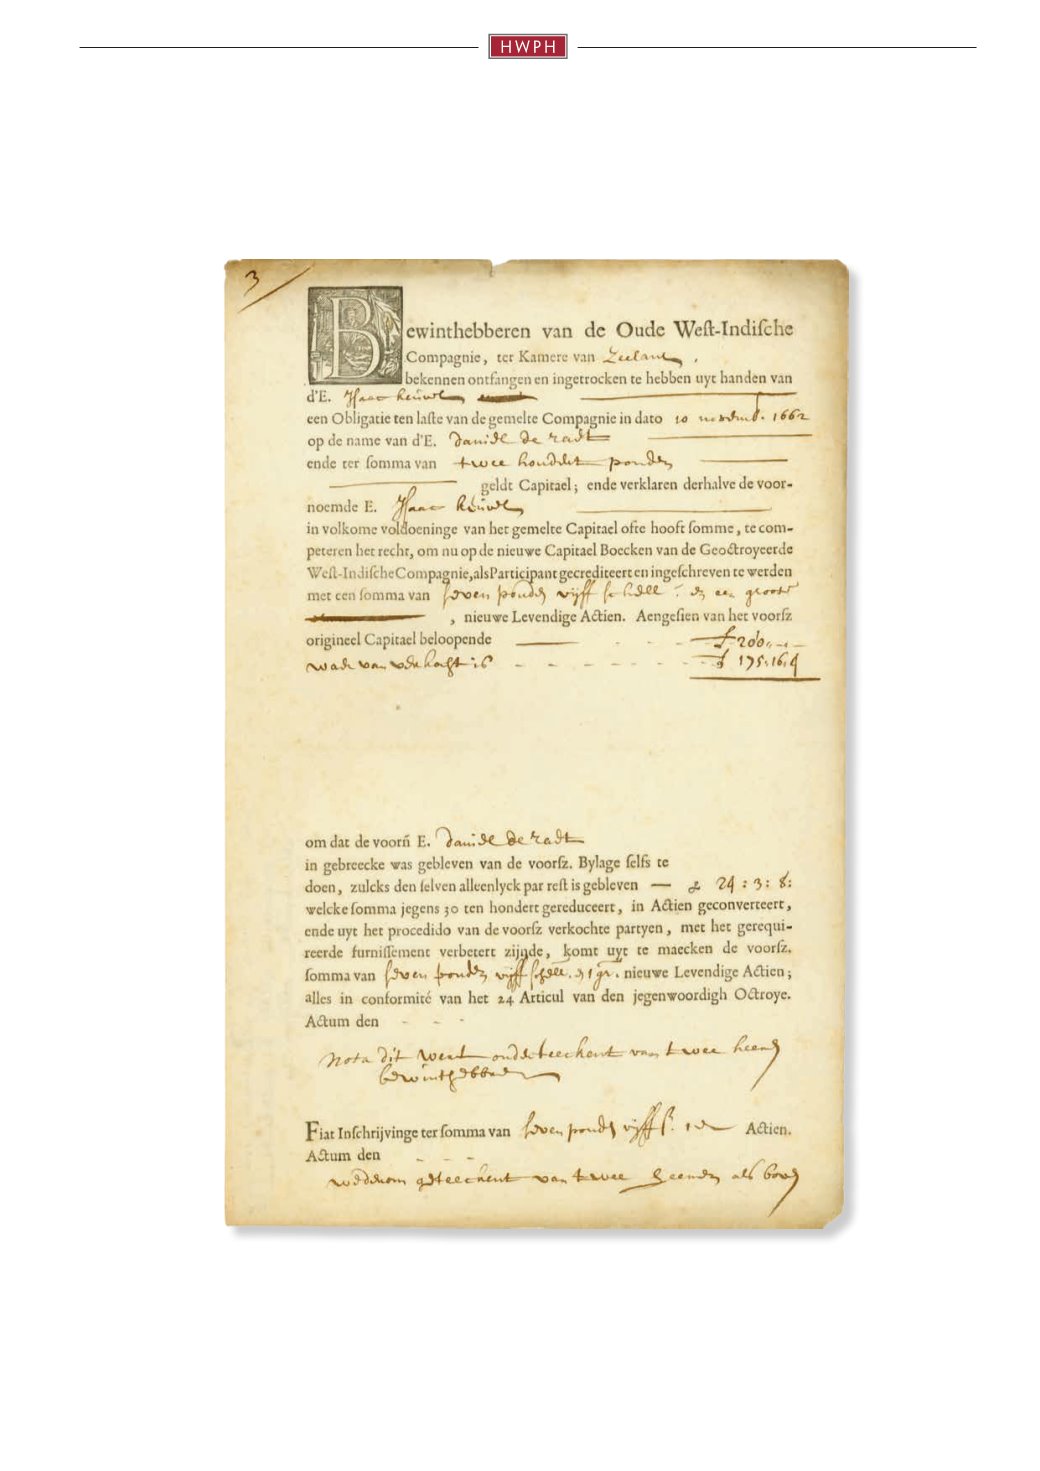 HWPH
3
Bewinthebberen van de Oude Weſt-Indiſche
Compagnie, ter Kamere van Zeelant,
bekennen ontfangen en ingetrocken te hebben uyt handen van
d'E. Isaac
een Obligatie ten laſte van de gemelte Compagnie in dato 10 novemb. 1662
op de name van d'E. Daniel de radt
ende ter ſomma van twee hondert ponden
geldt Capitael; ende verklaren derhalve de voor-
noemde E. Isaac
in volkome voldoeninge van het gemelte Capitael ofte hooft ſomme, te com-
peteren het recht, om nu op de nieuwe Capitael Boecken van de Geoctroyeerde
Weſt-Indiſche Compagnie, als Participant gecrediteert en ingeſchreven te werden
met een ſomma van seven ponden vijff schell: en een groote
, nieuwe Levendige Actien. Aengeſien van het voorſz
origineel Capitael beloopende £ 200
waer van verkocht is £ 175:16:4
om dat de voorñ E. Daniel de radt
in gebreecke was gebleven van de voorſz. Bylage ſelfs te
doen, zulcks den ſelven alleenlyck par reſt is gebleven — £ 24:3:8:
welcke ſomma jegens 30 ten hondert gereduceert, in Actien geconverteert,
ende uyt het procedido van de voorſz verkochte partyen, met het gerequi-
reerde furniſſement verbetert zijnde, komt uyt te maecken de voorſz.
ſomma van seven ponden vijff schell. en 1 gr. nieuwe Levendige Actien;
alles in conformité van het 24 Articul van den jegenwoordigh Octroye.
Actum den - - -
Nota dit went onderteeckent van twee heeren
bewinthebberen
Fiat Inſchrijvinge ter ſomma van seven pond vijff s. 1 Actien.
Actum den - - -
wederom geteeckent van twee heeren als boven